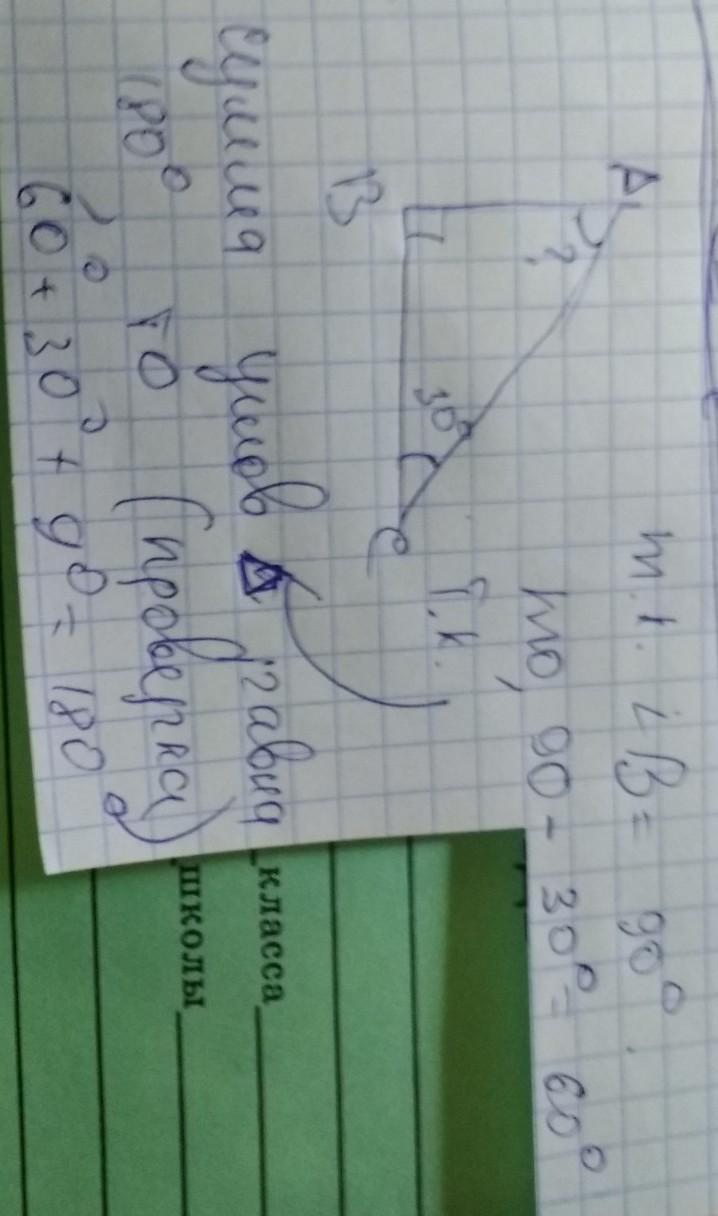 A
?
30°
B
C
т.к. ∠B = 90°.
то, 90 - 30° = 60°
т.к.
сумма углов △ равна
180°, то (проверка)
60° + 30° + 90 = 180°
класса
школы